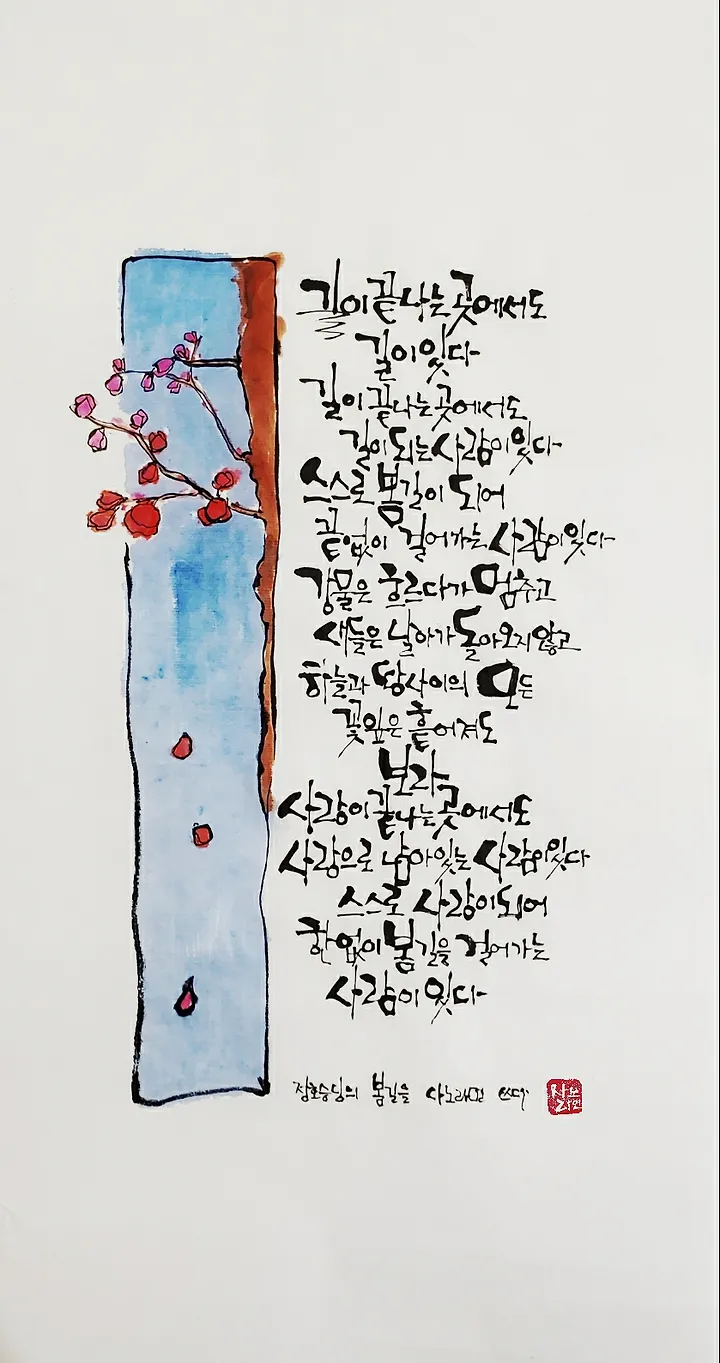 길이 끝나는 곳에서도
길이 있다
길이 끝나는 곳에서도
길이 되는 사람이 있다
스스로 봄길이 되어
끝없이 걸어가는 사람이 있다
강물은 흐르다가 멈추고
새들은 날아가 돌아오지 않고
하늘과 땅 사이의 모든
꽃잎은 흩어져도
보라
사랑이 끝나는 곳에서도
사랑으로 남아있는 사람이 있다
스스로 사랑이 되어
한없이 봄길을 걸어가는
사람이 있다
정호승님의 봄길을 사노라면 쓰다